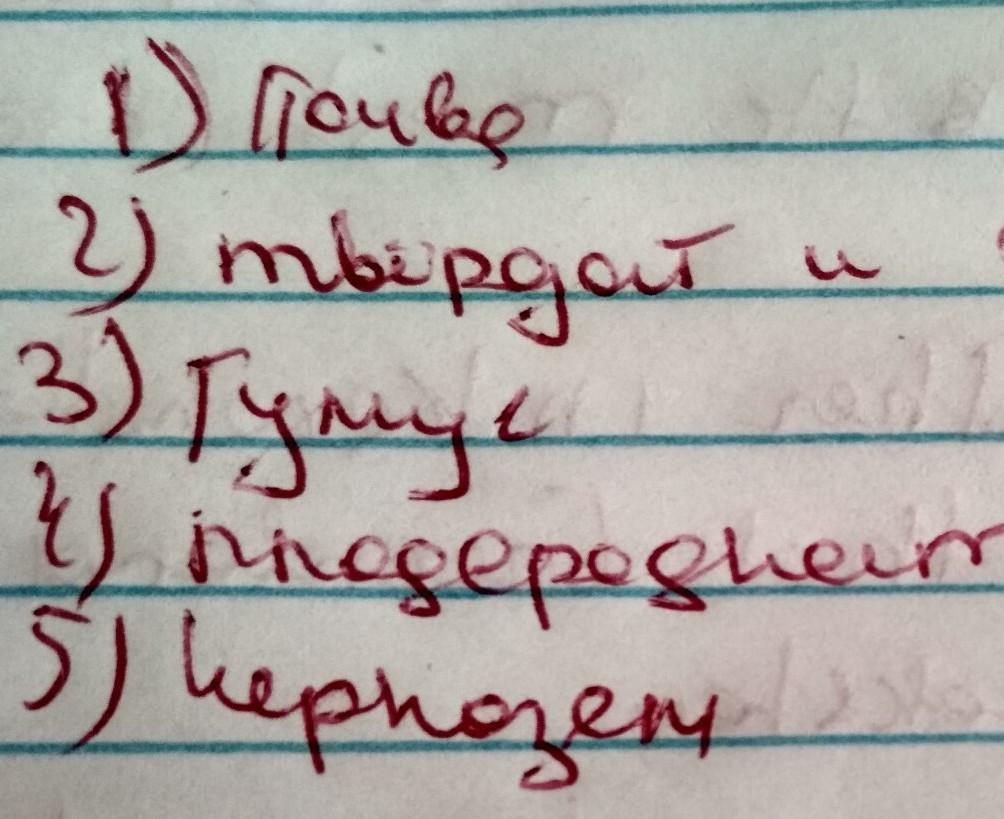 1) Почва
2) твёрдой и
3) Гумус
4) плодородност
5) Чернозем